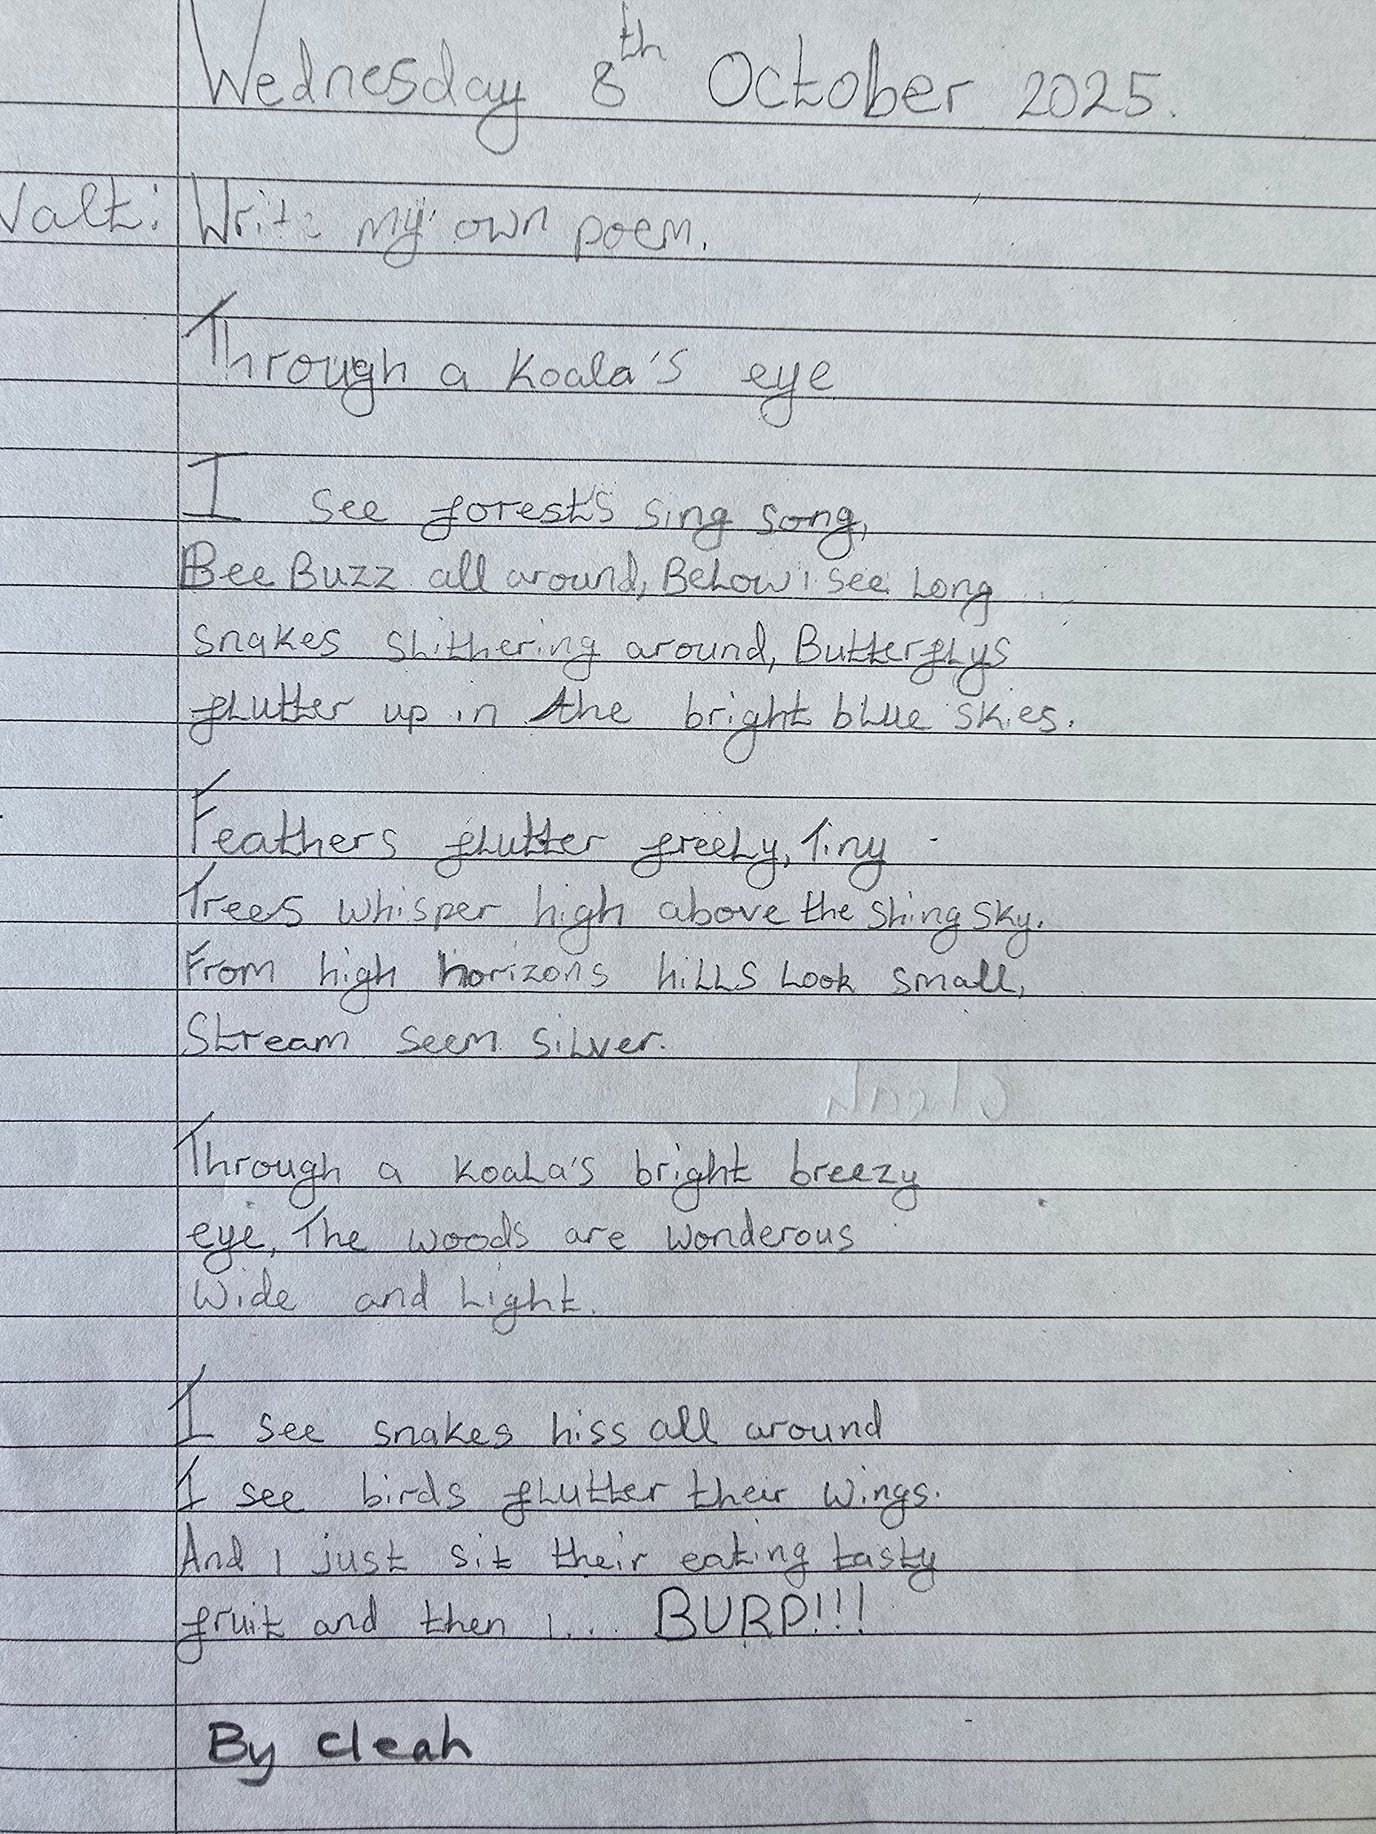 Wednesday 8th October 2025.
Walt: Write my own poem.
Through a Koala's eye
I see forest's sing song,
Bee Buzz all around, Below i see Long
snakes slithering around, Butterflys
flutter up in the bright blue skies.
Feathers flutter freely, Tiny
Trees whisper high above the shing sky.
From high horizons hills Look small,
Stream seem silver.
Through a koala's bright breezy
eye, The woods are wonderous
Wide and Light.
I see snakes hiss all around
I see birds flutter their wings.
And i just sit their eating tasty
fruit and then i... BURP!!!
By cleah